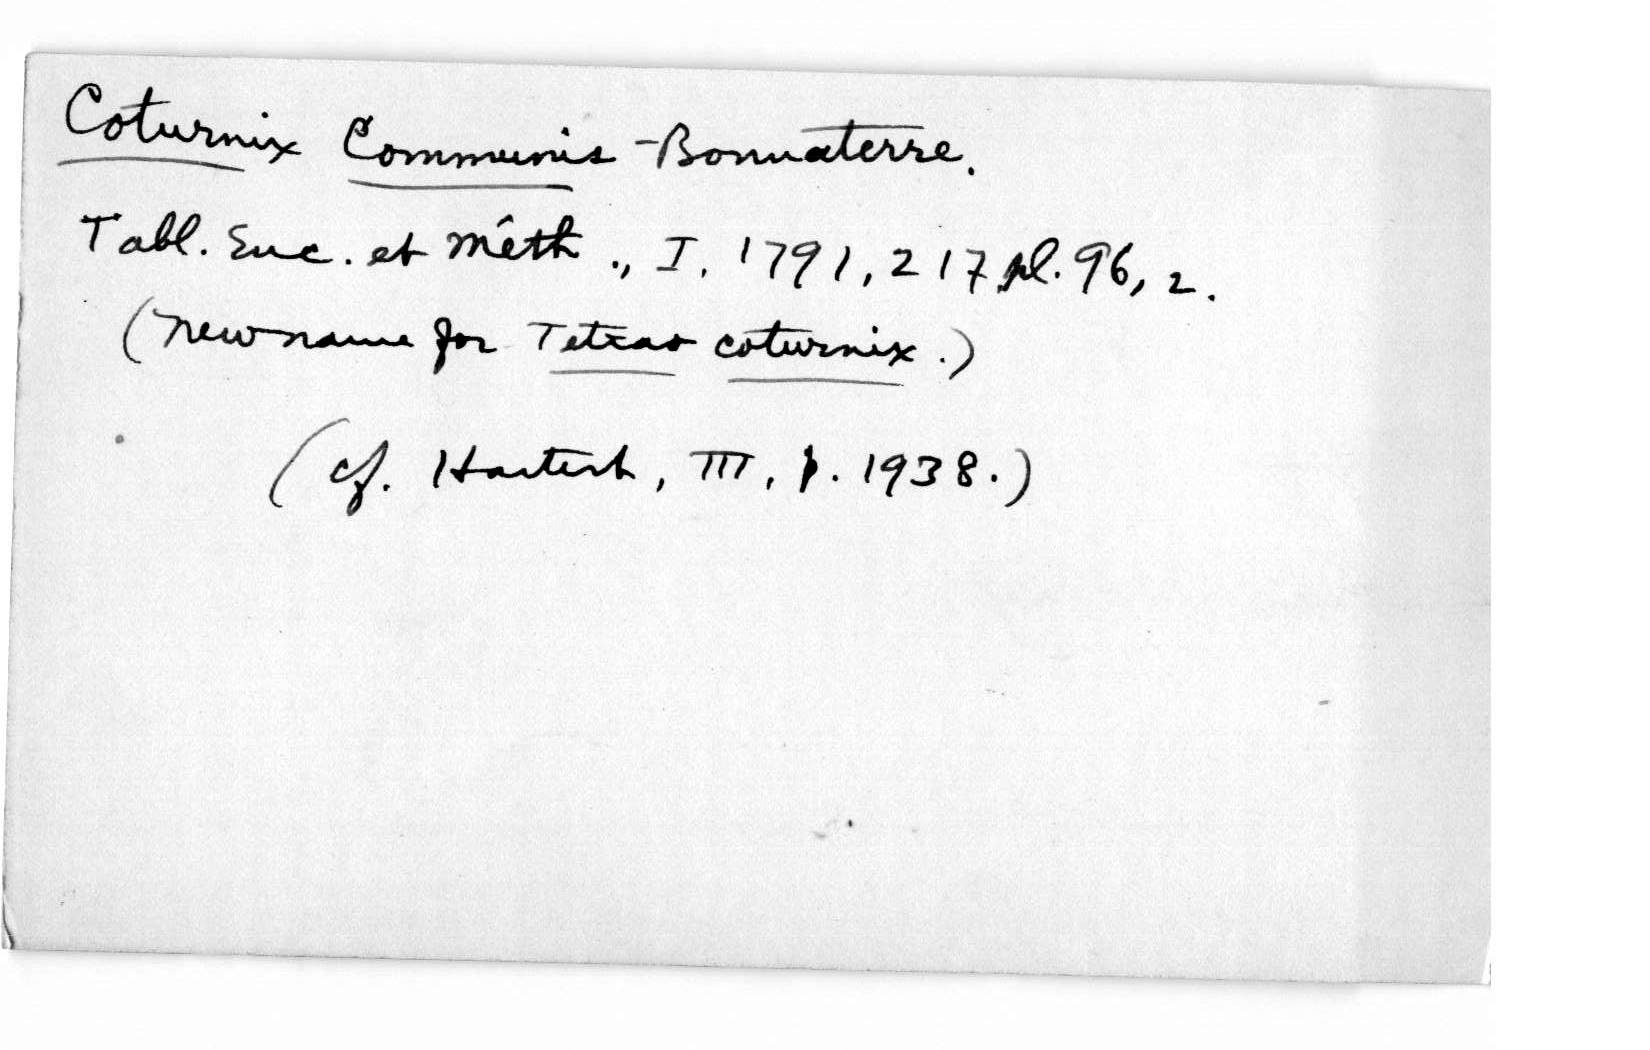 Coturnix Communis - Bonnaterre.
Tabl. Enc. et Méth., I. 1791, 217 pl. 96, 2.
(new name for Tetrao coturnix.)
(cf. Hartert, III, p. 1938.)